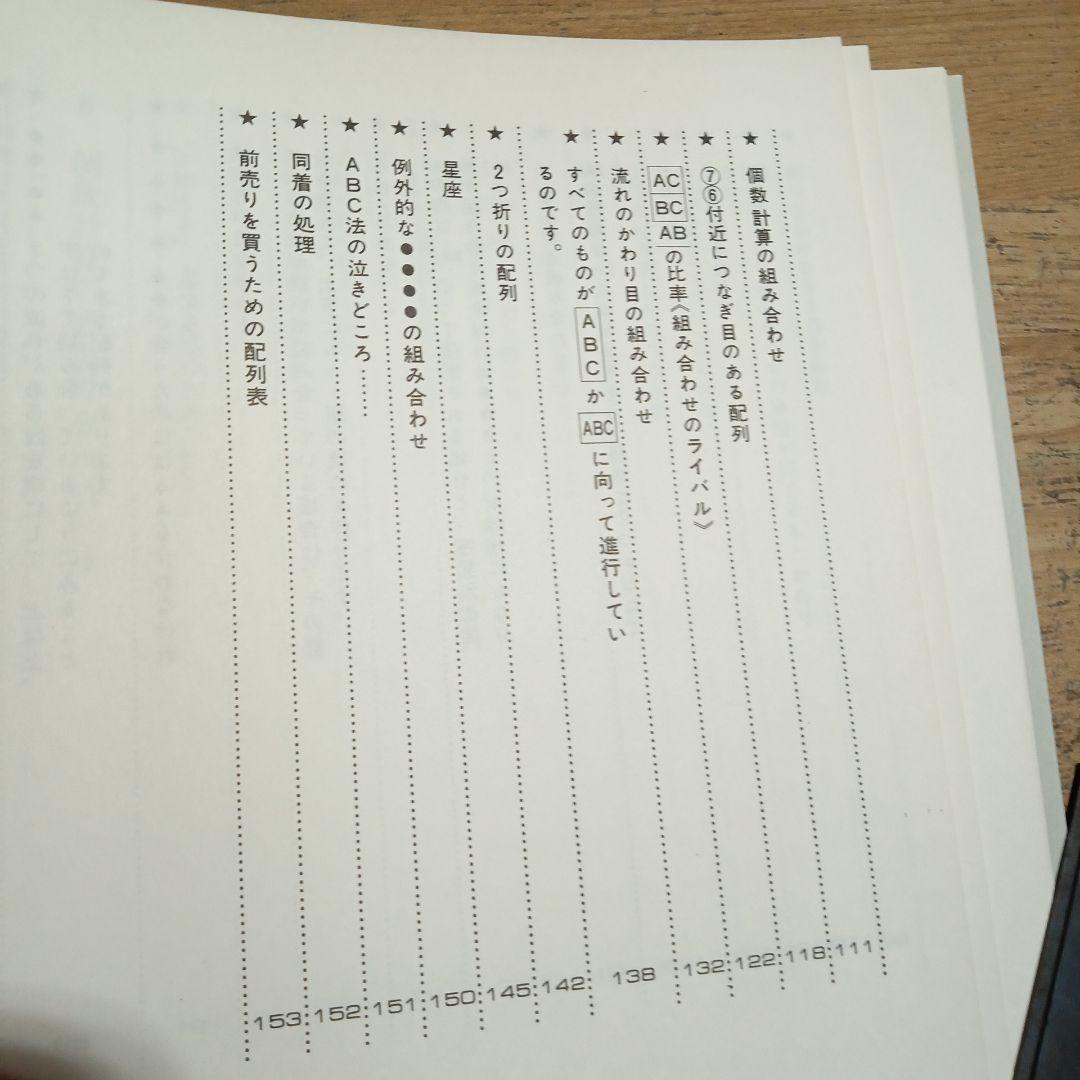 ★ 個数計算の組み合わせ 111
★ ⑦⑥付近につなぎ目のある配列 118
★ AC BC ABの比率《組み合わせのライバル》 122
★ 流れのかわり目の組み合わせ 132
★ すべてのものがABCかABCに向って進行してい
るのです。 138
★ 2つ折りの配列 142
★ 星座 145
★ 例外的な●●●●の組み合わせ 150
★ ABC法の泣きどころ…… 151
★ 同着の処理 152
★ 前売りを買うための配列表 153